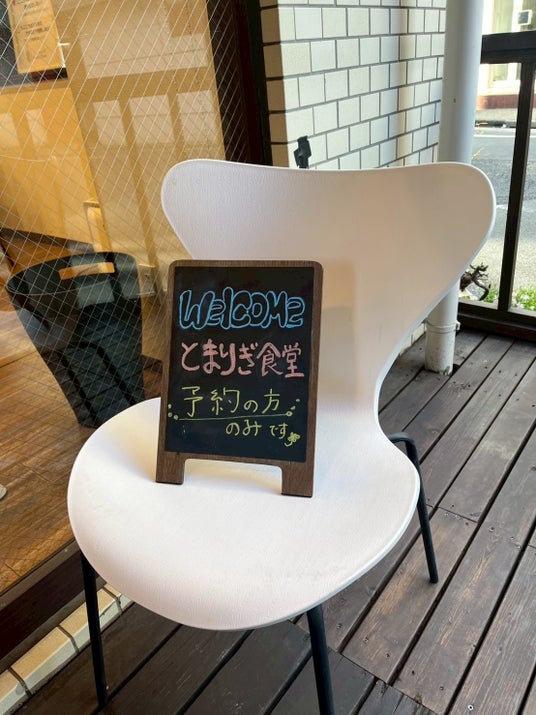 WELCOME
とまりぎ食堂
予約の方
のみです